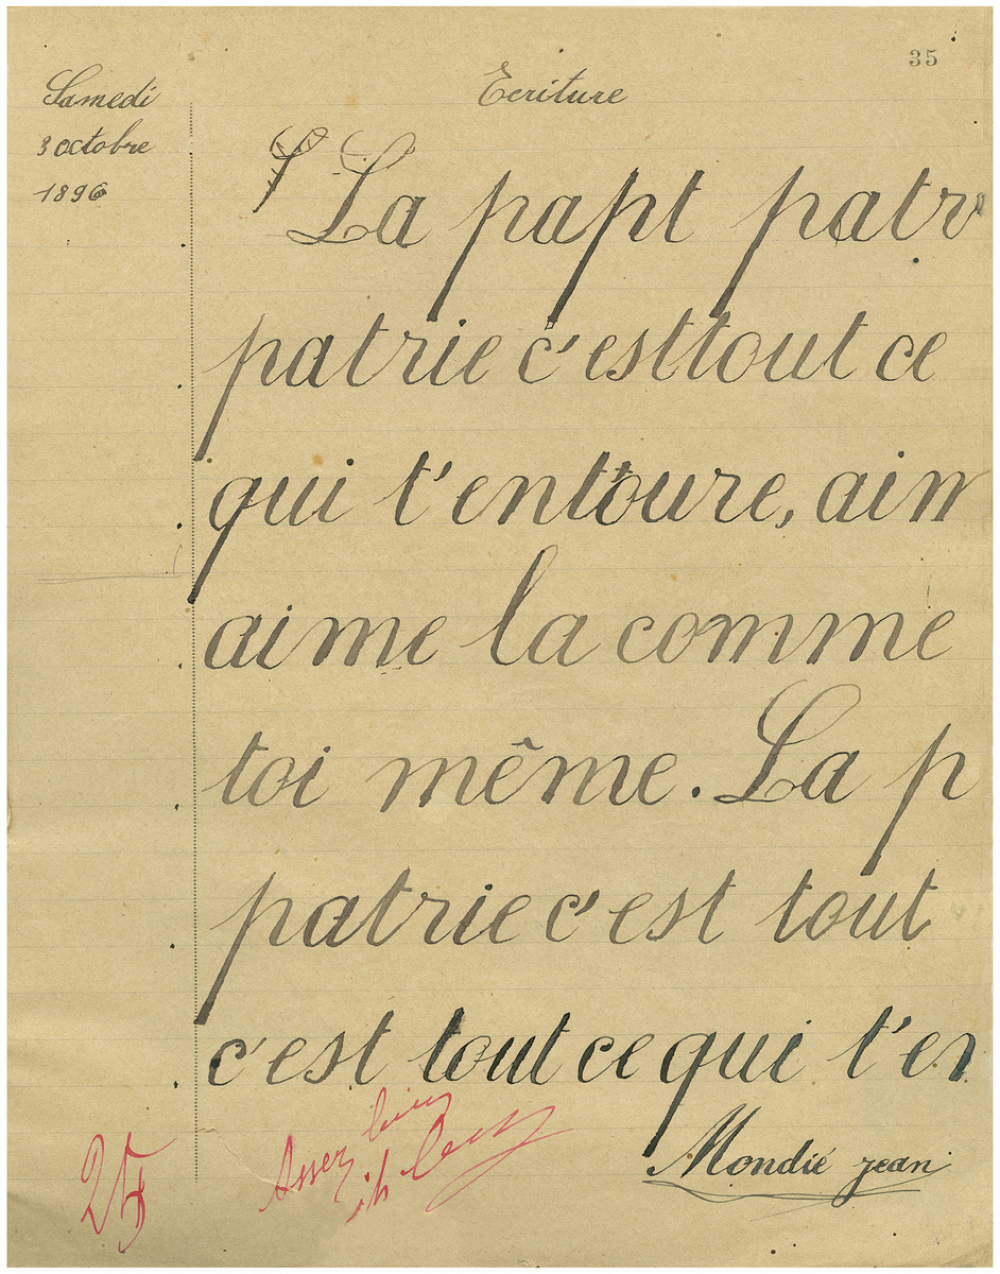 35
Ecriture
Samedi
3 octobre
1896
La papt patr
patrie c'est tout ce
qui t'entoure, aim
aime la comme
toi même. La p
patrie c'est tout
c'est tout ce qui t'en
Mondié jean
Assez bien
25